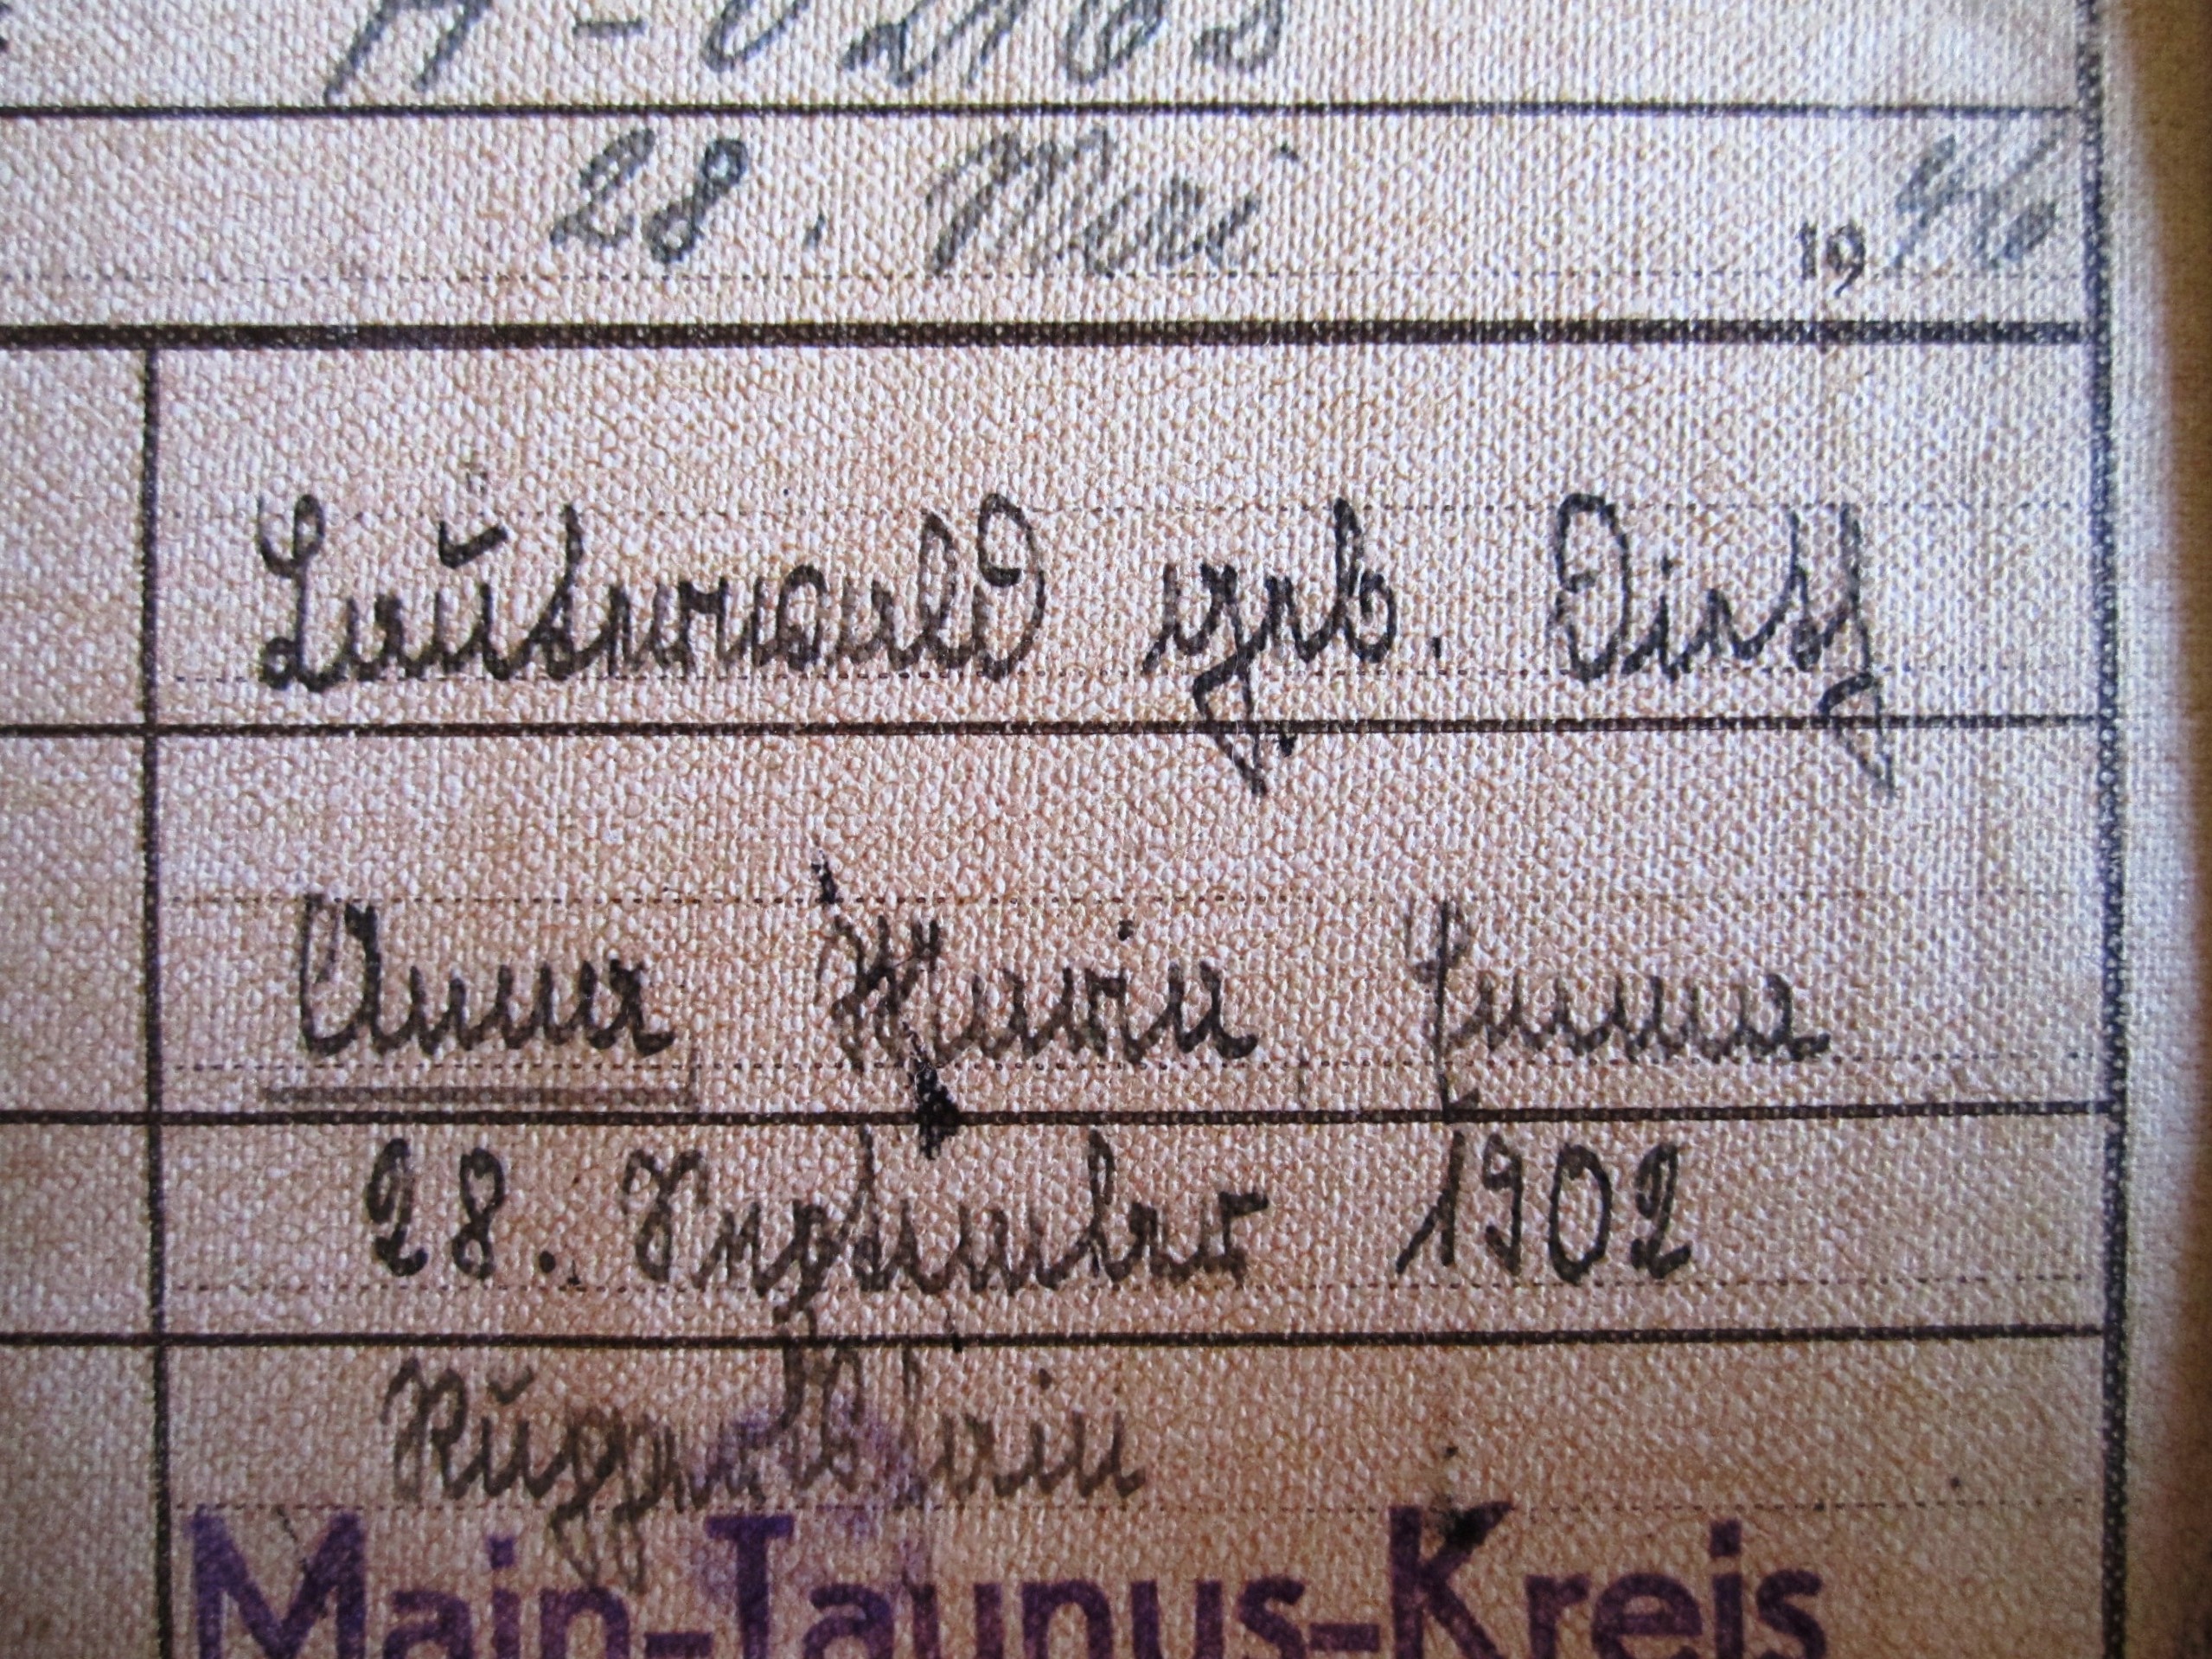 28. Mai 1946
Lauterwald geb. Dietz
Anna Maria
28. September 1902
Ruppertshain
Main-Taunus-Kreis